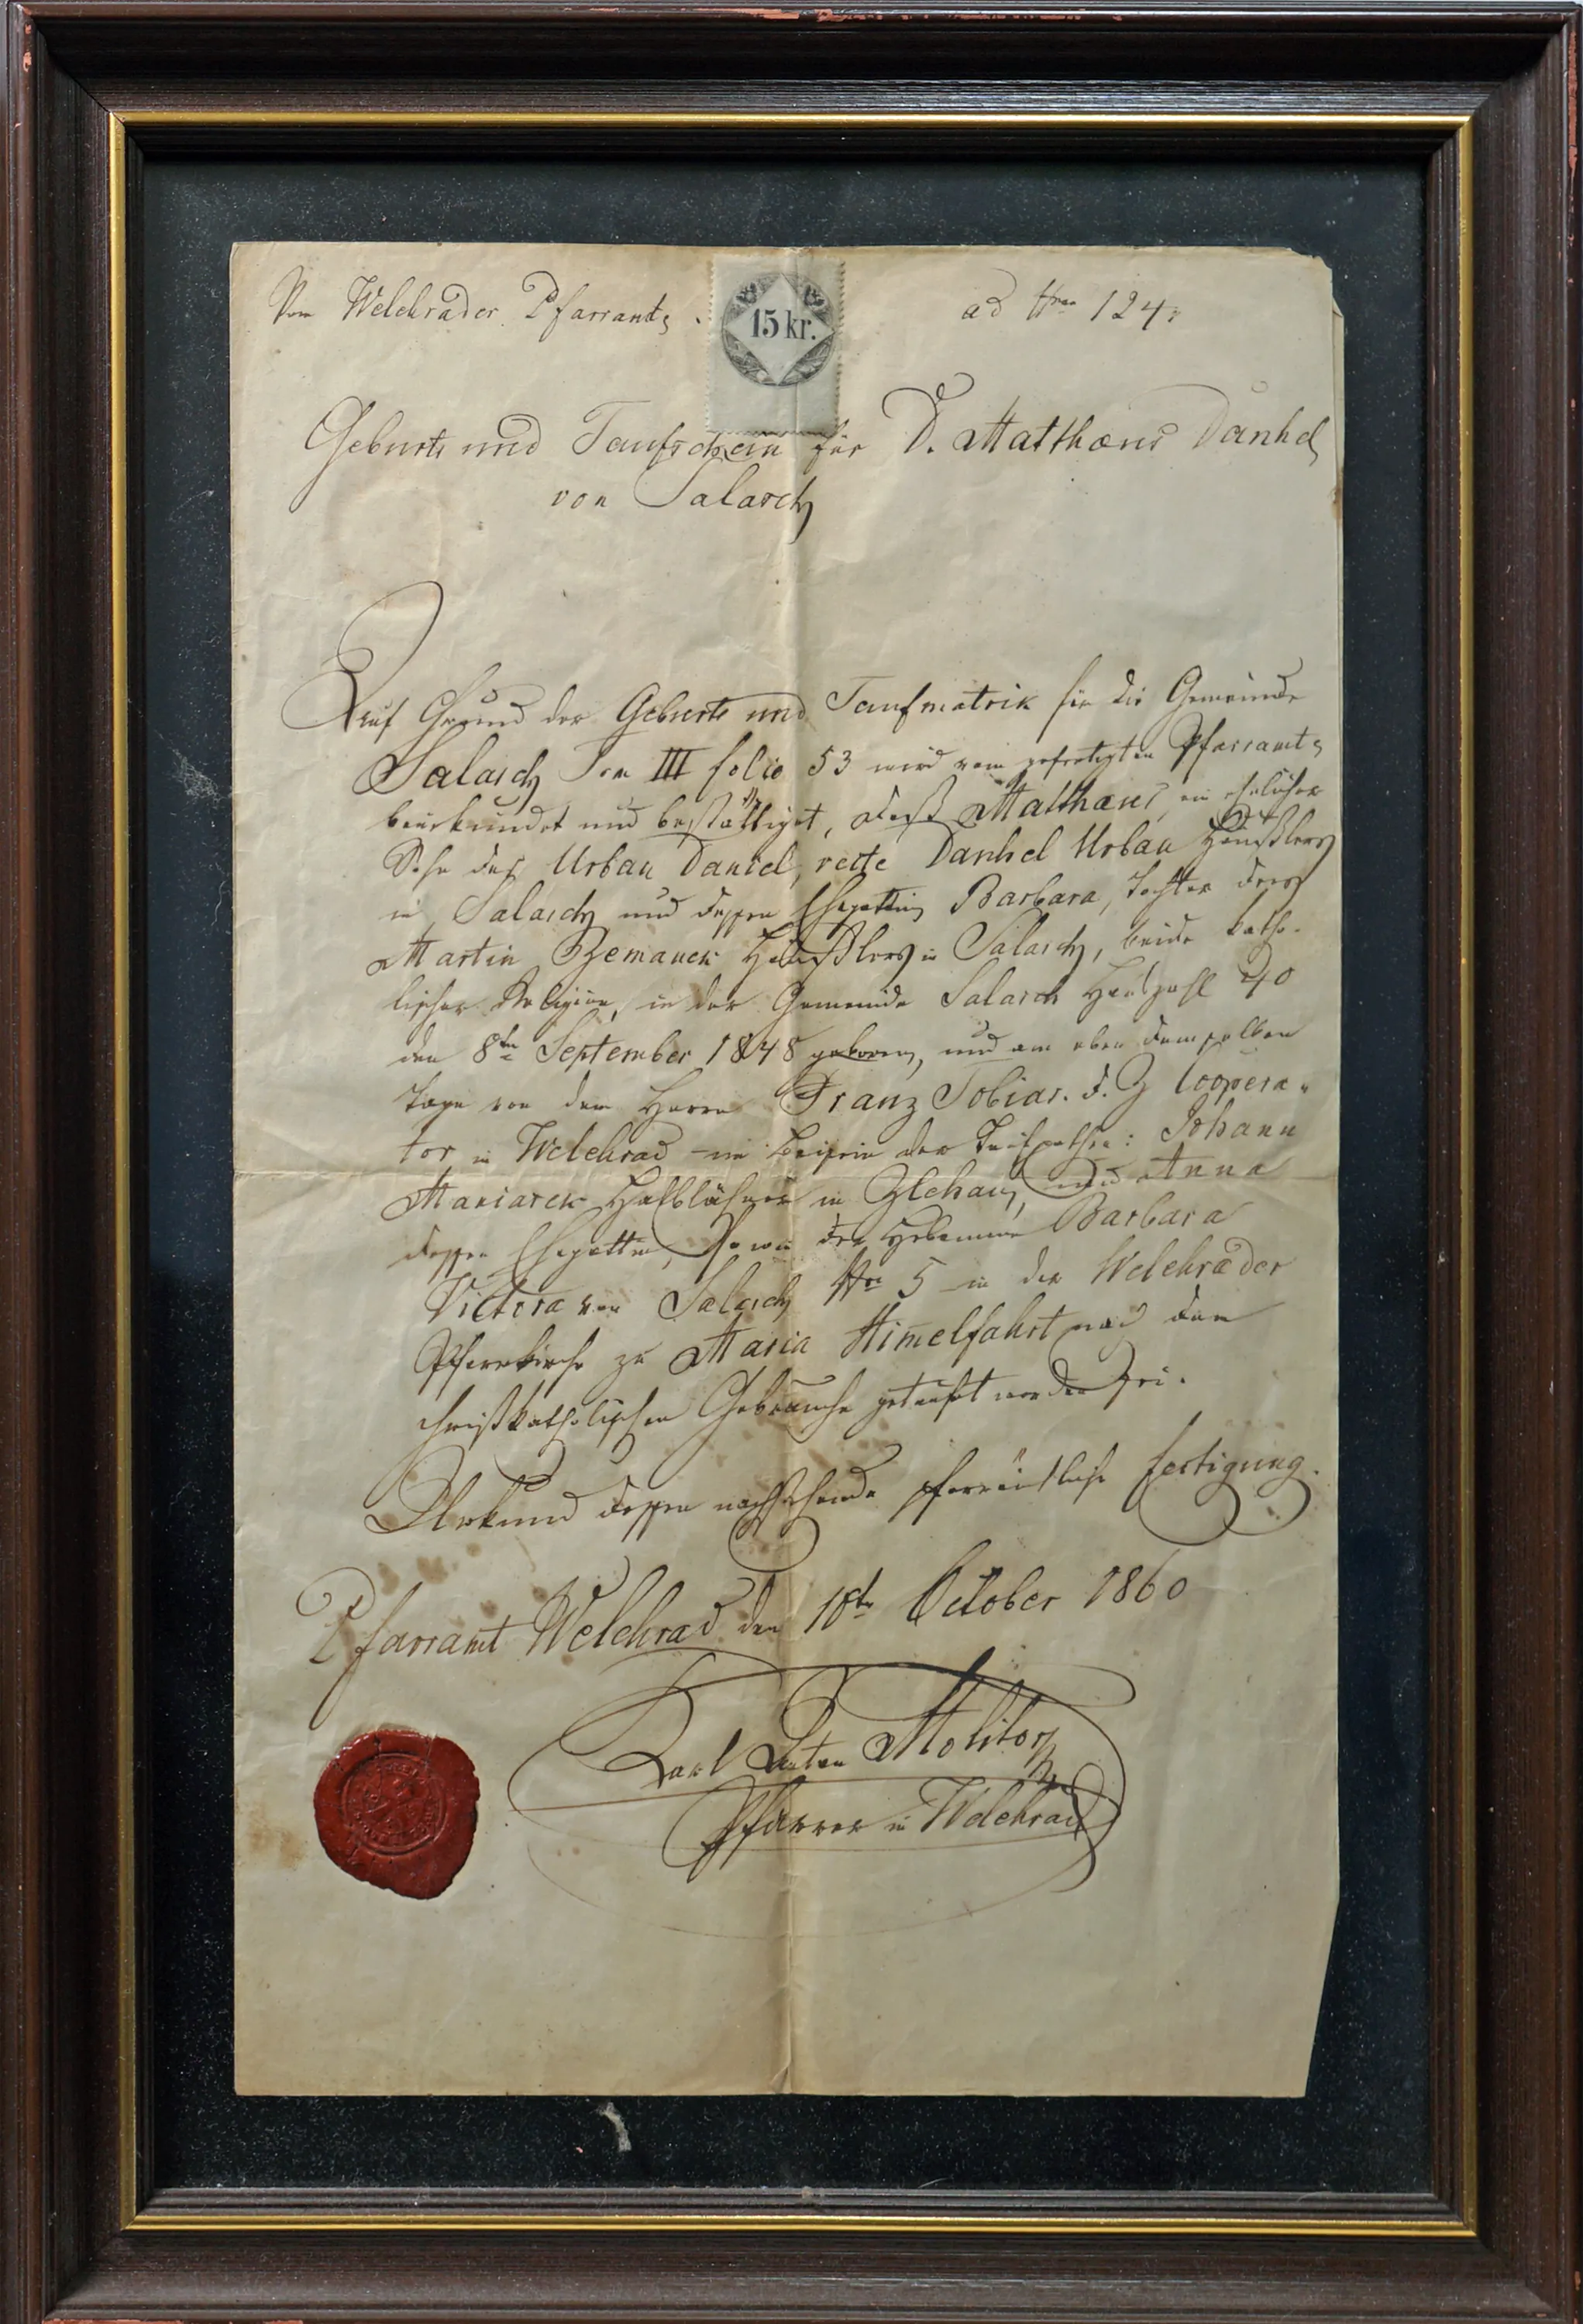 Vom Welehrader Pfarramte.
15 kr.
ad Nro 124
Geburts und Taufschein für D. Matthaeus Danhel
von Salasch
Auf Grund der Geburts und Taufmatrik für die Gemeinde
Salasch Tom III folio 53 wird vom gefertigten Pfarramte
beurkundet und bestättiget, daß Matthaeus, ein ehelicher
Sohn des Urban Daniel, recte Danhel Urban Häußlers
in Salasch und dessen Ehegattin Barbara, Tochter des
Martin Zemanek Häußlers in Salasch, beide katho-
lischer Religion, in der Gemeinde Salasch Hauszahl 40
den 8ten September 1848 geboren, und am eben demselben
Tage von dem Herrn Franz Tobias. d. Z Coopera-
tor in Welehrad im Beisein der Taufpathen: Johann
Halblähner in Zlehau, und Anna
dessen Ehegattin, sowie der Hebamme Barbara
Victora von Salasch Nro 5 in der Welehrader
Pfarrkirche zu Maria Himelfahrt nach dem
christkatholischen Gebrauche getauft worden sei.
Urkund dessen nachstehende pfarrämtliche Fertigung.
Pfarramt Welehrad den October 1860
Karl Anton Molitor
Pfarrer in Welehrad